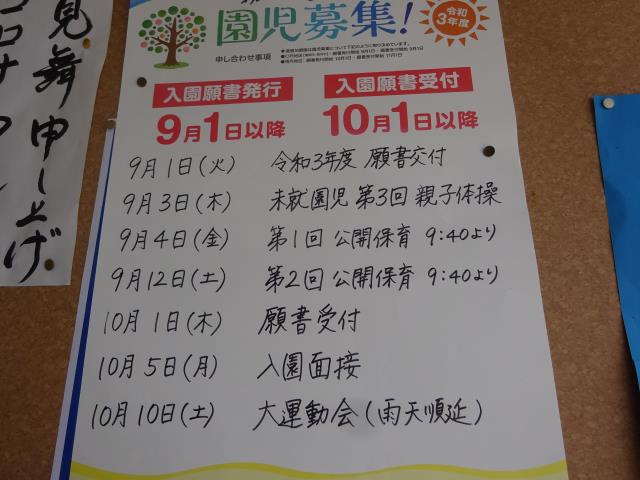 園児募集!
令和
3年度
申し合わせ事項
入園願書発行
9月1日以降
入園願書受付
10月1日以降
9月1日(火) 令和3年度 願書交付
9月3日(木) 未就園児 第3回 親子体操
9月4日(金) 第1回 公開保育 9:40より
9月12日(土) 第2回 公開保育 9:40より
10月1日(木) 願書受付
10月5日(月) 入園面接
10月10日(土) 大運動会(雨天順延)
見舞申し上げ